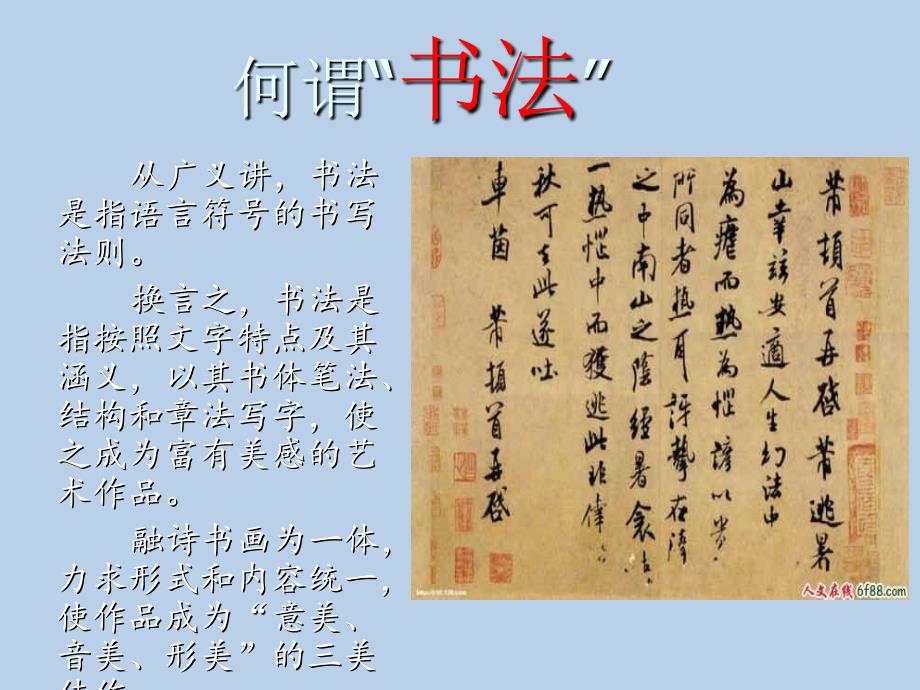 何谓“书法”
从广义讲，书法
是指语言符号的书写
法则。
换言之，书法是
指按照文字特点及其
涵义，以其书体笔法、
结构和章法写字，使
之成为富有美感的艺
术作品。
融诗书画为一体，
力求形式和内容统一，
使作品成为“意美、
音美、形美”的三美
芾頓首再啓芾逃暑
山幸兹安適人生幻法中
為瘧而熱為惱諺以貴
所同者熱耳訝摯在
之中南山之陰經暑衾
一熱惱中而獲逃此非
秋可去此遂吐
車茵 芾頓首再啓
人文在线 6f88.com